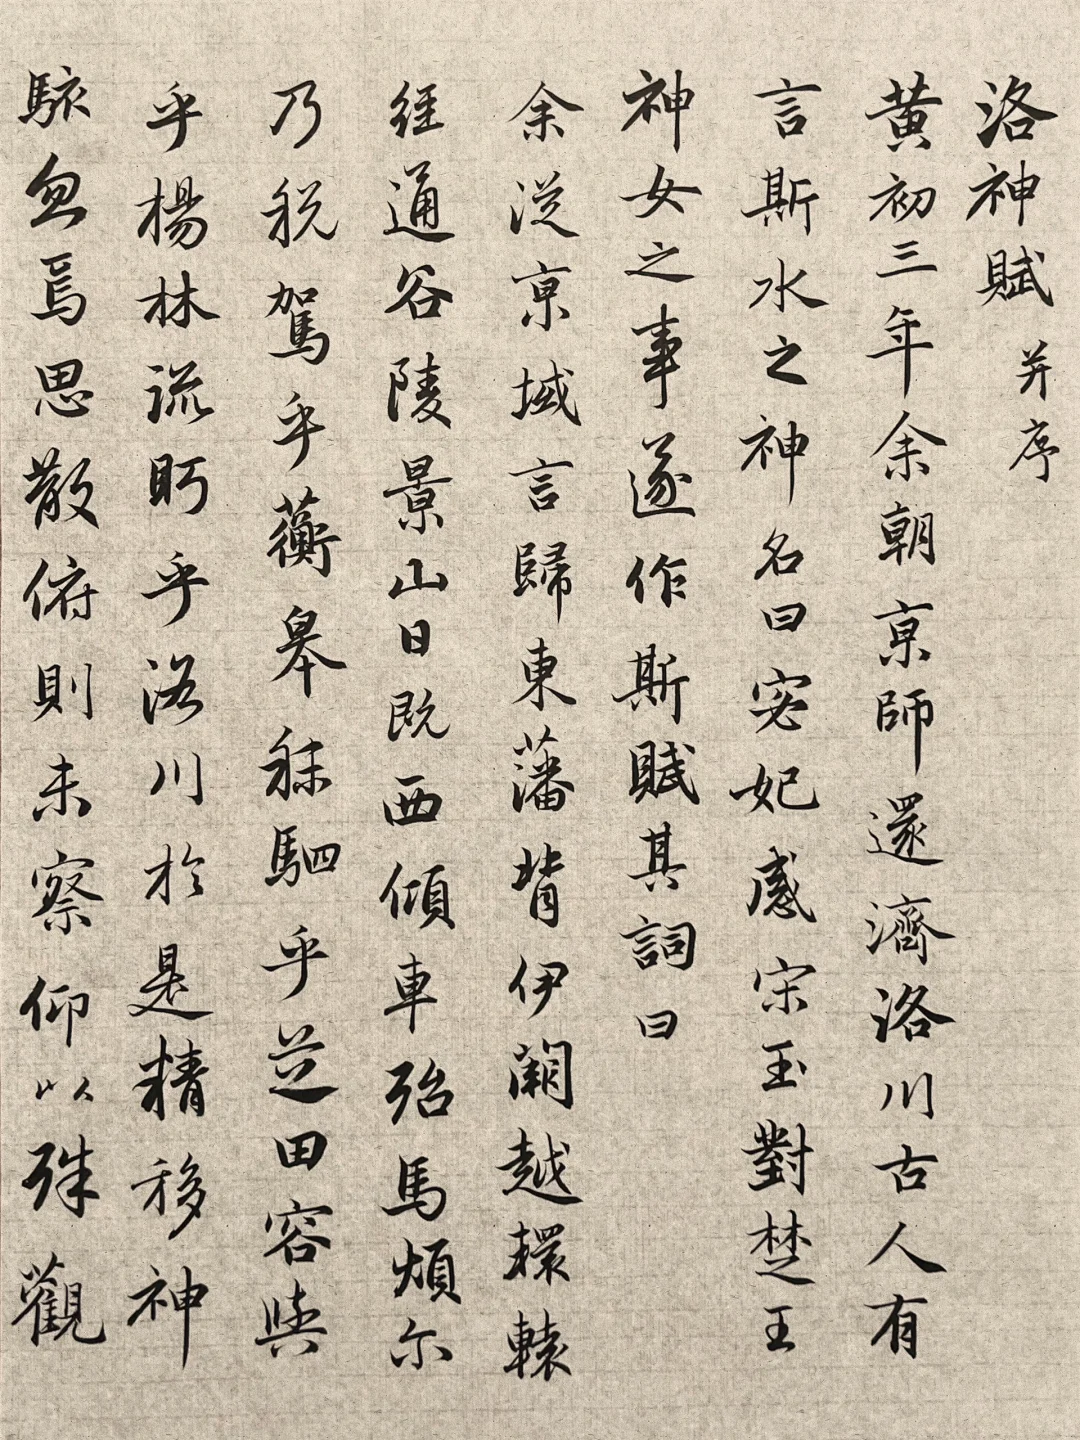 洛神賦 并序
黃初三年余朝京師還濟洛川古人有
言斯水之神名曰宓妃感宋玉對楚王
神女之事遂作斯賦其詞曰
余從京域言歸東藩背伊闕越轘轅
經通谷陵景山日既西傾車殆馬煩尓
乃税駕乎蘅皋秣駟乎芝田容與
乎楊林流眄乎洛川於是精移神
駭忽焉思散俯則未察仰以殊觀